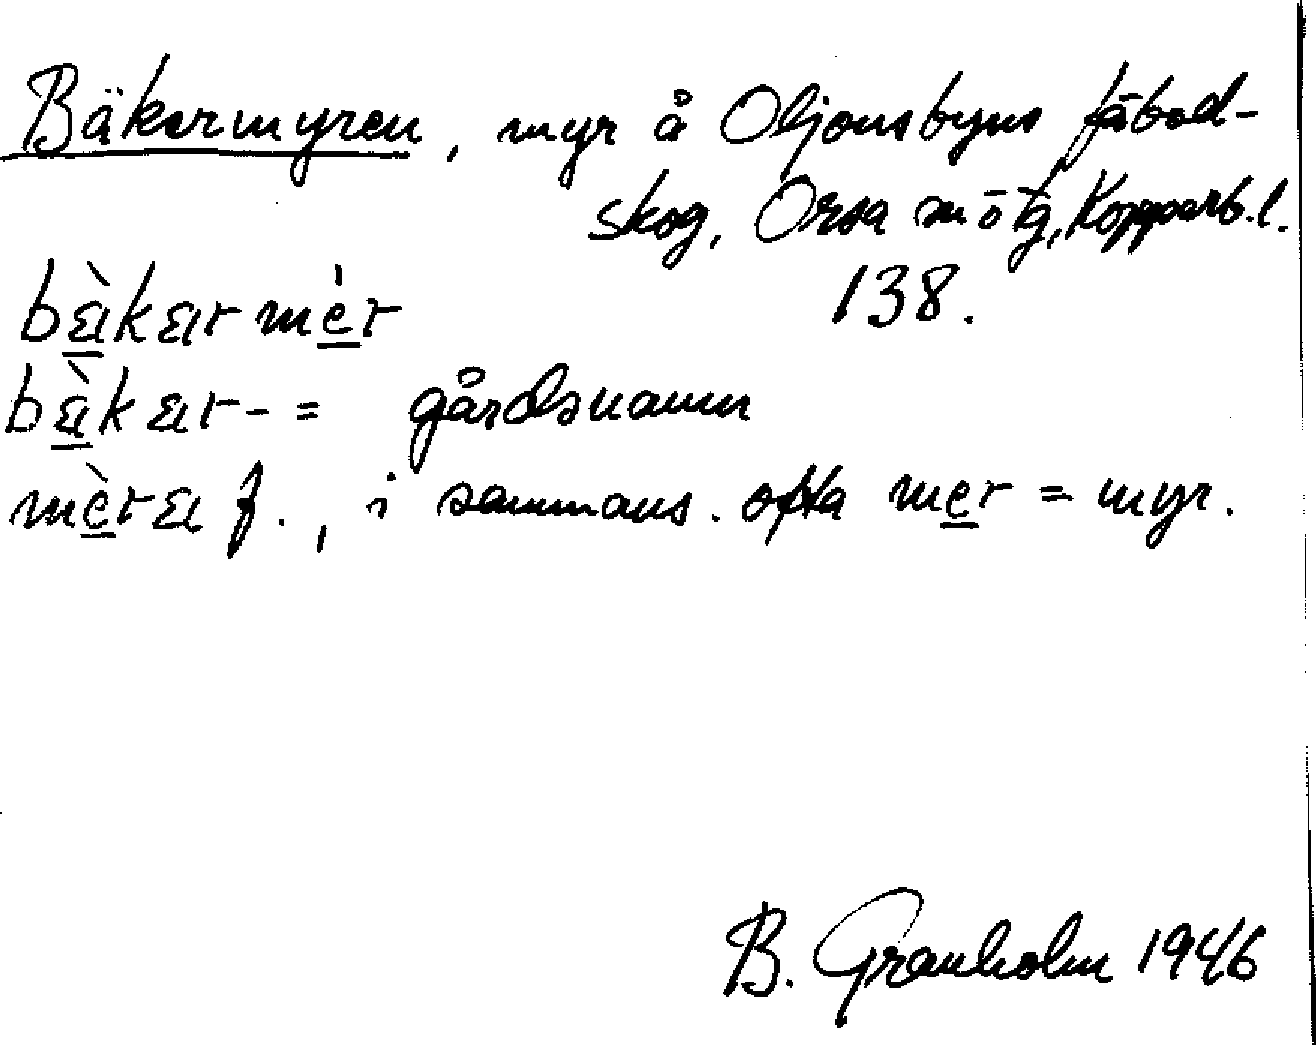 Bäkermyren, myr å Oljonsbyns fäbod-
skog, Orsa sn o tg, Kopparb. l.
bæ̀kær mèr 138.
bæ̀kær- = gårdsnamn
mèræ f., i sammans. ofta mer = myr.
B. Granholm 1946